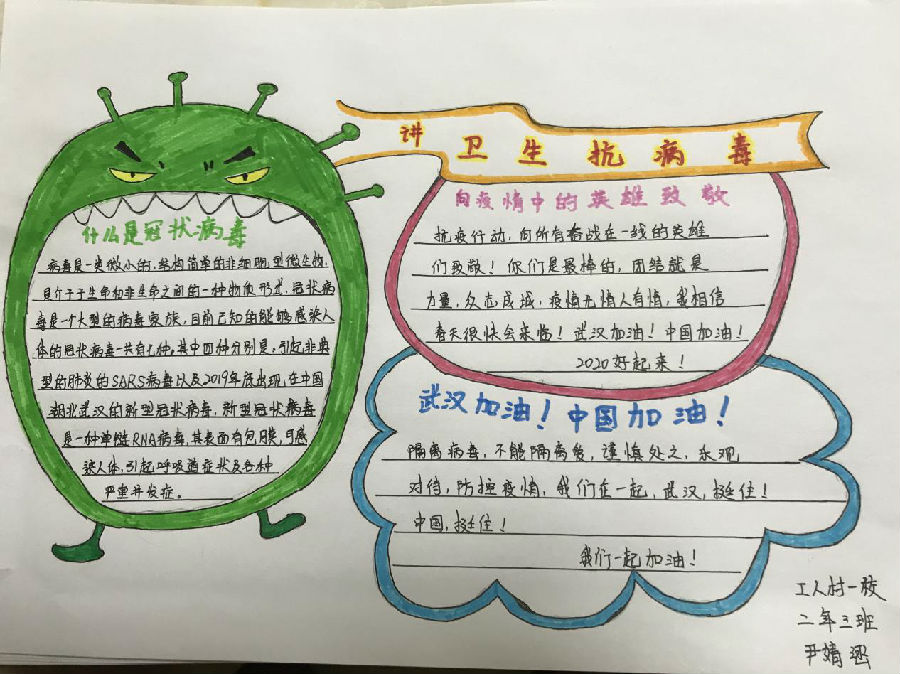 讲卫生抗病毒
什么是冠状病毒
病毒是一类微小的,结构简单的非细胞型微生物,
是介于于生命和非生命之间的一种物质形式,冠状病
毒是一个大型的病毒家族,目前已知的能够感染人
体的冠状病毒一共有七种,其中四种分别是,引起非典
型的肺炎的SARS病毒以及2019年底出现,在中国
湖北武汉的新型冠状病毒,新型冠状病毒
是一种单链RNA病毒,其表面有包膜,可感
染人体,引起呼吸道症状及各种
严重并发症。
向疫情中的英雄致敬
抗疫行动,向所有奋战在一线的英雄
们致敬!你们是最棒的,团结就是
力量,众志成城,疫情无情人有情,我相信
春天很快会来临!武汉加油!中国加油!
2020好起来!
武汉加油!中国加油!
隔离病毒,不能隔离爱,谨慎处之,乐观
对待,防控疫情,我们在一起,武汉,挺住!
中国,挺住!
我们一起加油!
工人村一校
二年三班
尹婧涵